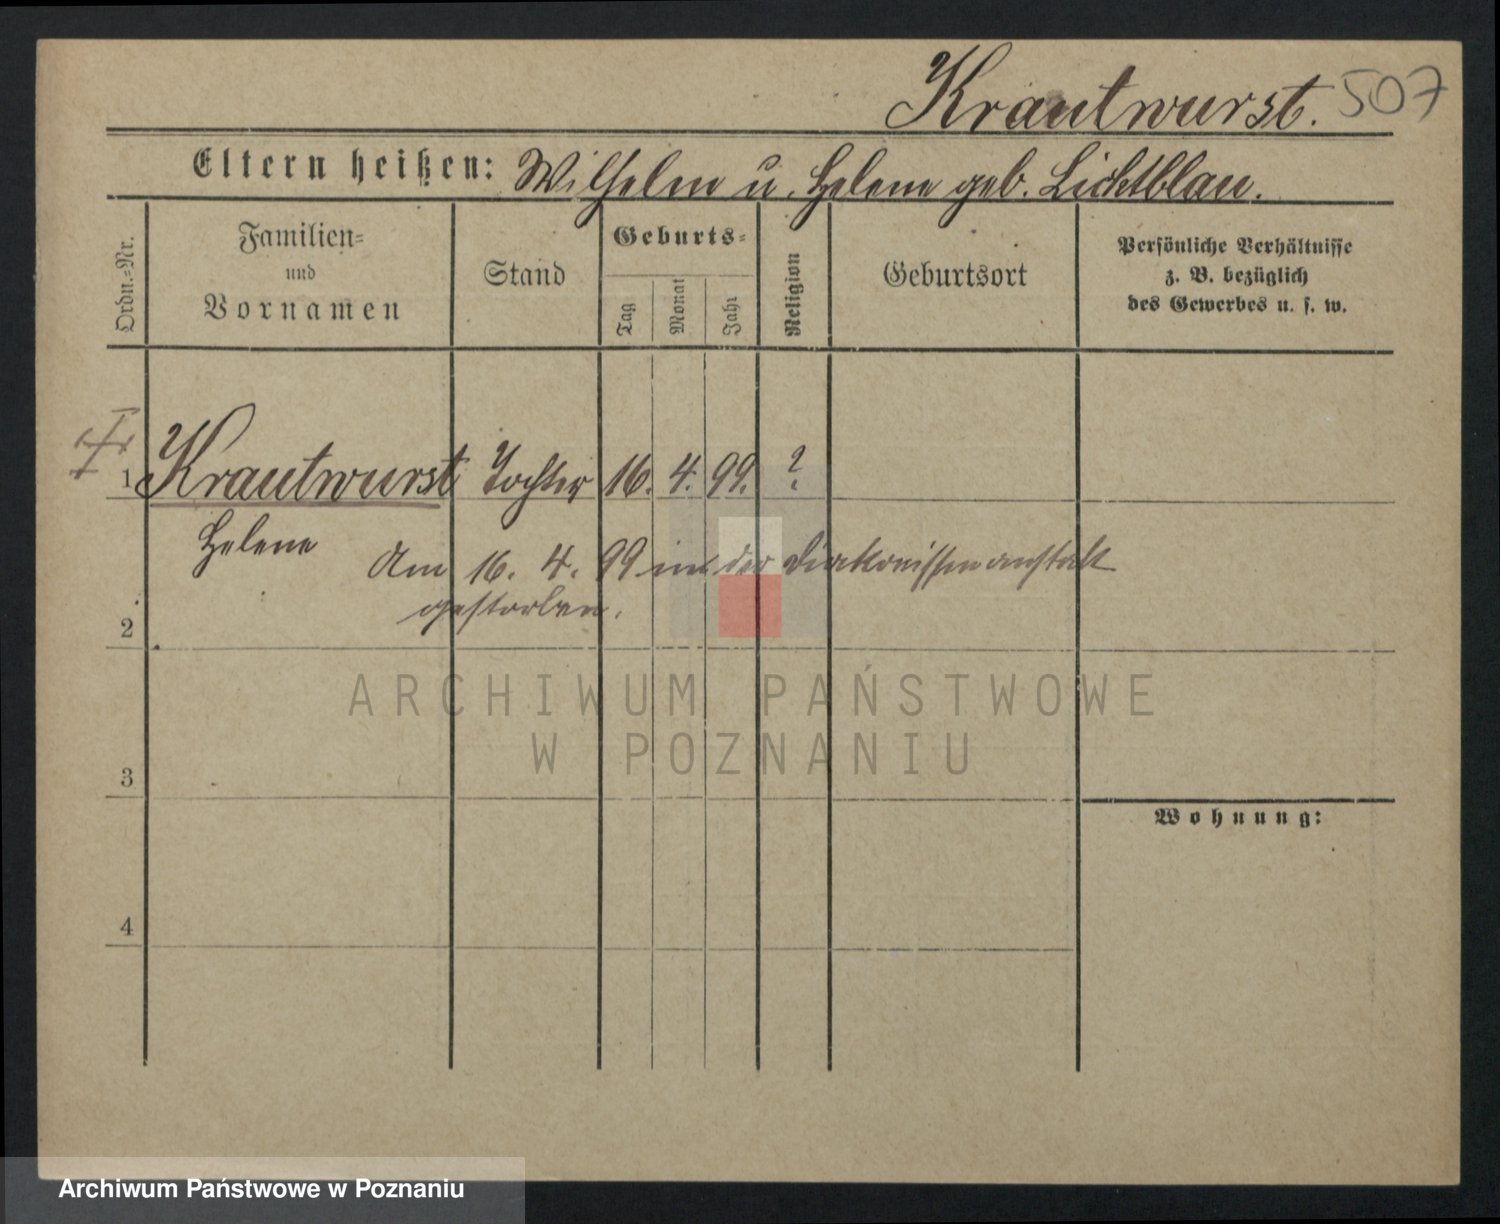 Krautwurst. 507
Eltern heißen: Wilhelm u. Helene geb. Lichtblau.
Ordn.=Nr.
Familien=
und
Vornamen
Stand
Geburts=
Tag
Monat
Jahr
Religion
Geburtsort
Persönliche Verhältnisse
z. B. bezüglich
des Gewerbes u. s. w.
1 Krautwurst Tochter 16. 4. 99. ?
Helene
Am 16. 4. 99 in der Diakonissenanstalt
gestorben.
2
ARCHIWUM PAŃSTWOWE
W POZNANIU
3
Wohnung:
4
Archiwum Państwowe w Poznaniu